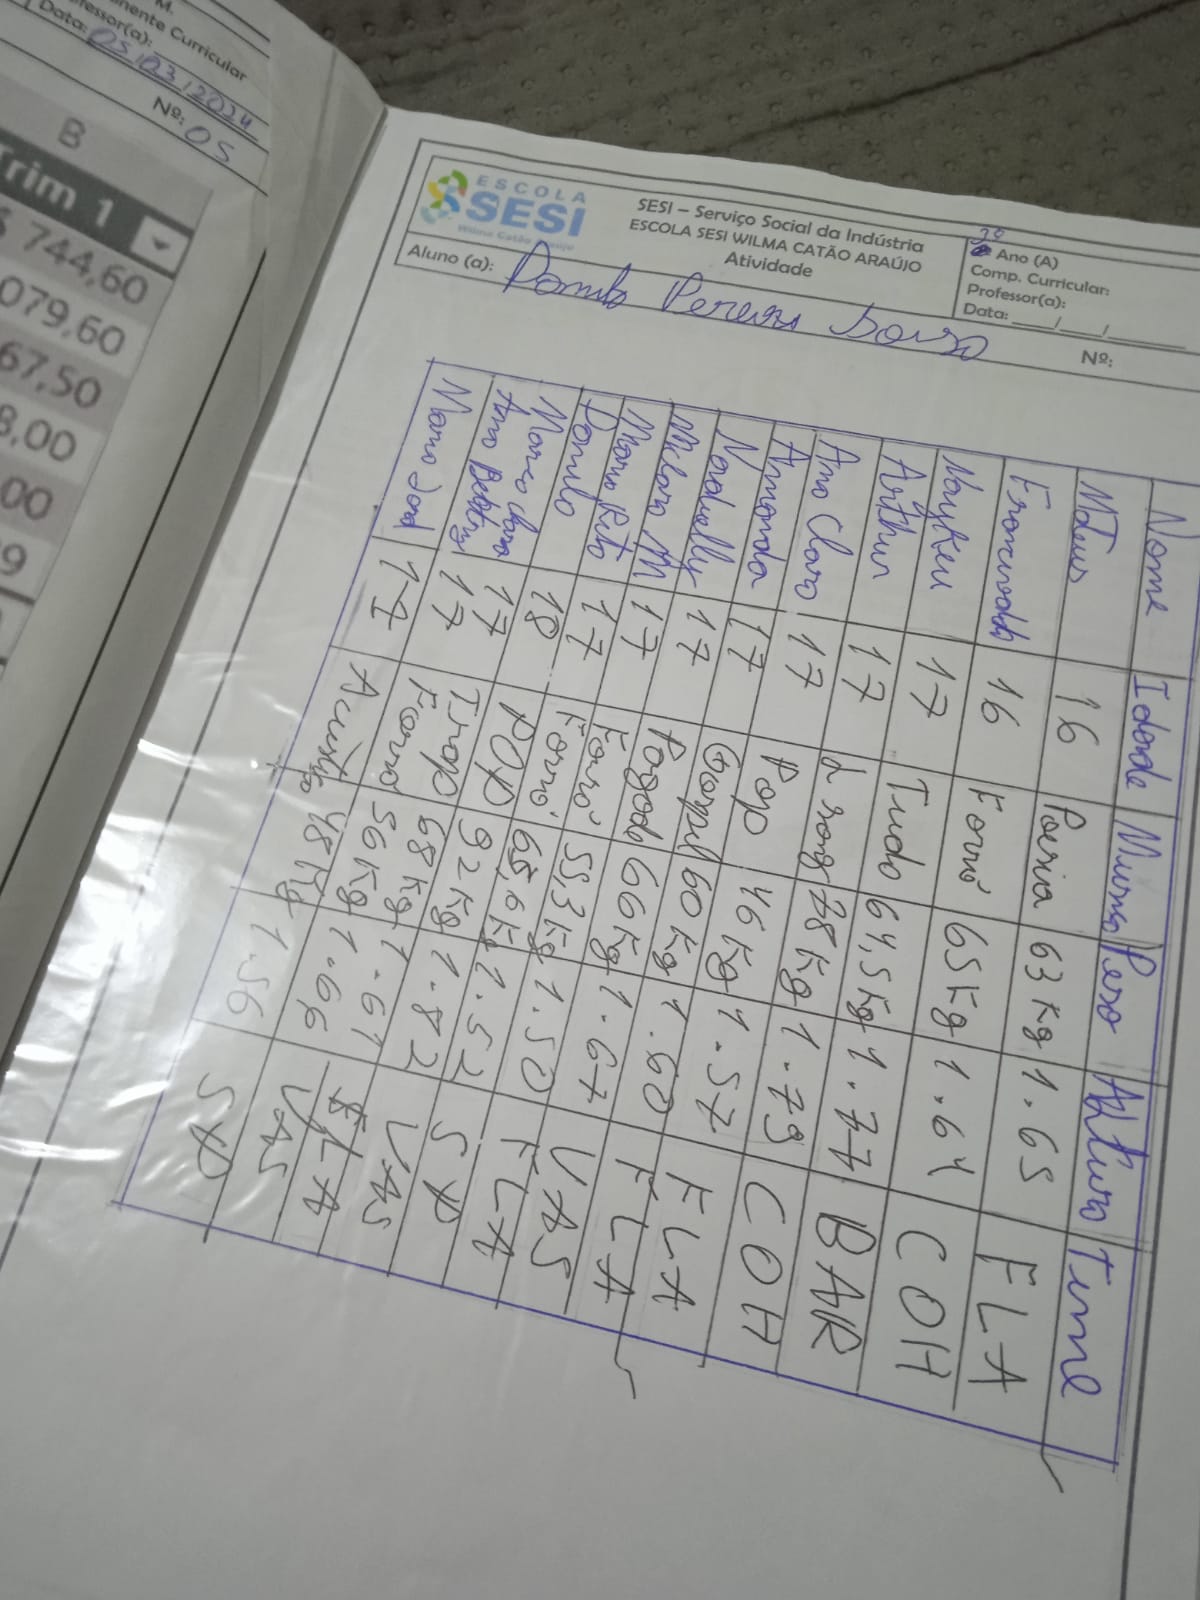 M.
nente Curricular
fessor(a):
Data: 05/03/2024
Nº: 05
B
Trim 1
744,60
079,60
67,50
8,00
00
9
ESCOLA
SESI
Wilma Catão Araújo
SESI – Serviço Social da Indústria
ESCOLA SESI WILMA CATÃO ARAÚJO
Atividade
3º Ano (A)
Comp. Curricular:
Professor(a):
Data: ___/___/______
Aluno (a): Danilo Pereira Sousa
Nº:
Nome Idade Musica Peso Altura Time
Mateus 16 Poesia 63 Kg 1.65 FLA
16 Forró 65 Kg 1.64 COH
17 Tudo 64,5 Kg 1.77 BAR
Arthur 17 78 Kg 1.79 COH
Ana Clara 17 Pop 46 Kg 1.57 FLA
Amanda 17 Gospel 60 Kg 1.60 FLA
Nadially 17 Pagode 66 Kg 1.67 VAS
Milara M 17 Forró 55,3 Kg 1.50 FLA
Maria Rita 17 Forró 65,6 Kg 1.52 SP
Danilo 18 POP 92 Kg 1.82 VAS
Maria Clara 17 Trap 68 Kg 1.61 FLA
Ana 17 Forró 56 Kg 1.66 VAS
17 Acústico 48 Kg 1.56 SP